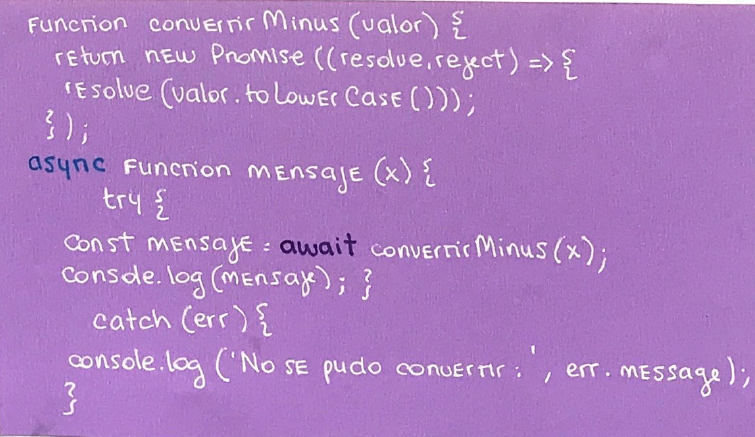 Function convertir Minus (valor) {
return new Promise ((resolve, reject) => {
resolve (valor. to Lower Case ()));
});
async Function mensaje (x) {
try {
const mensaje = await convertir Minus (x);
console.log (mensaje); }
catch (err) {
console.log ('No se pudo convertir : ', err. message);
}